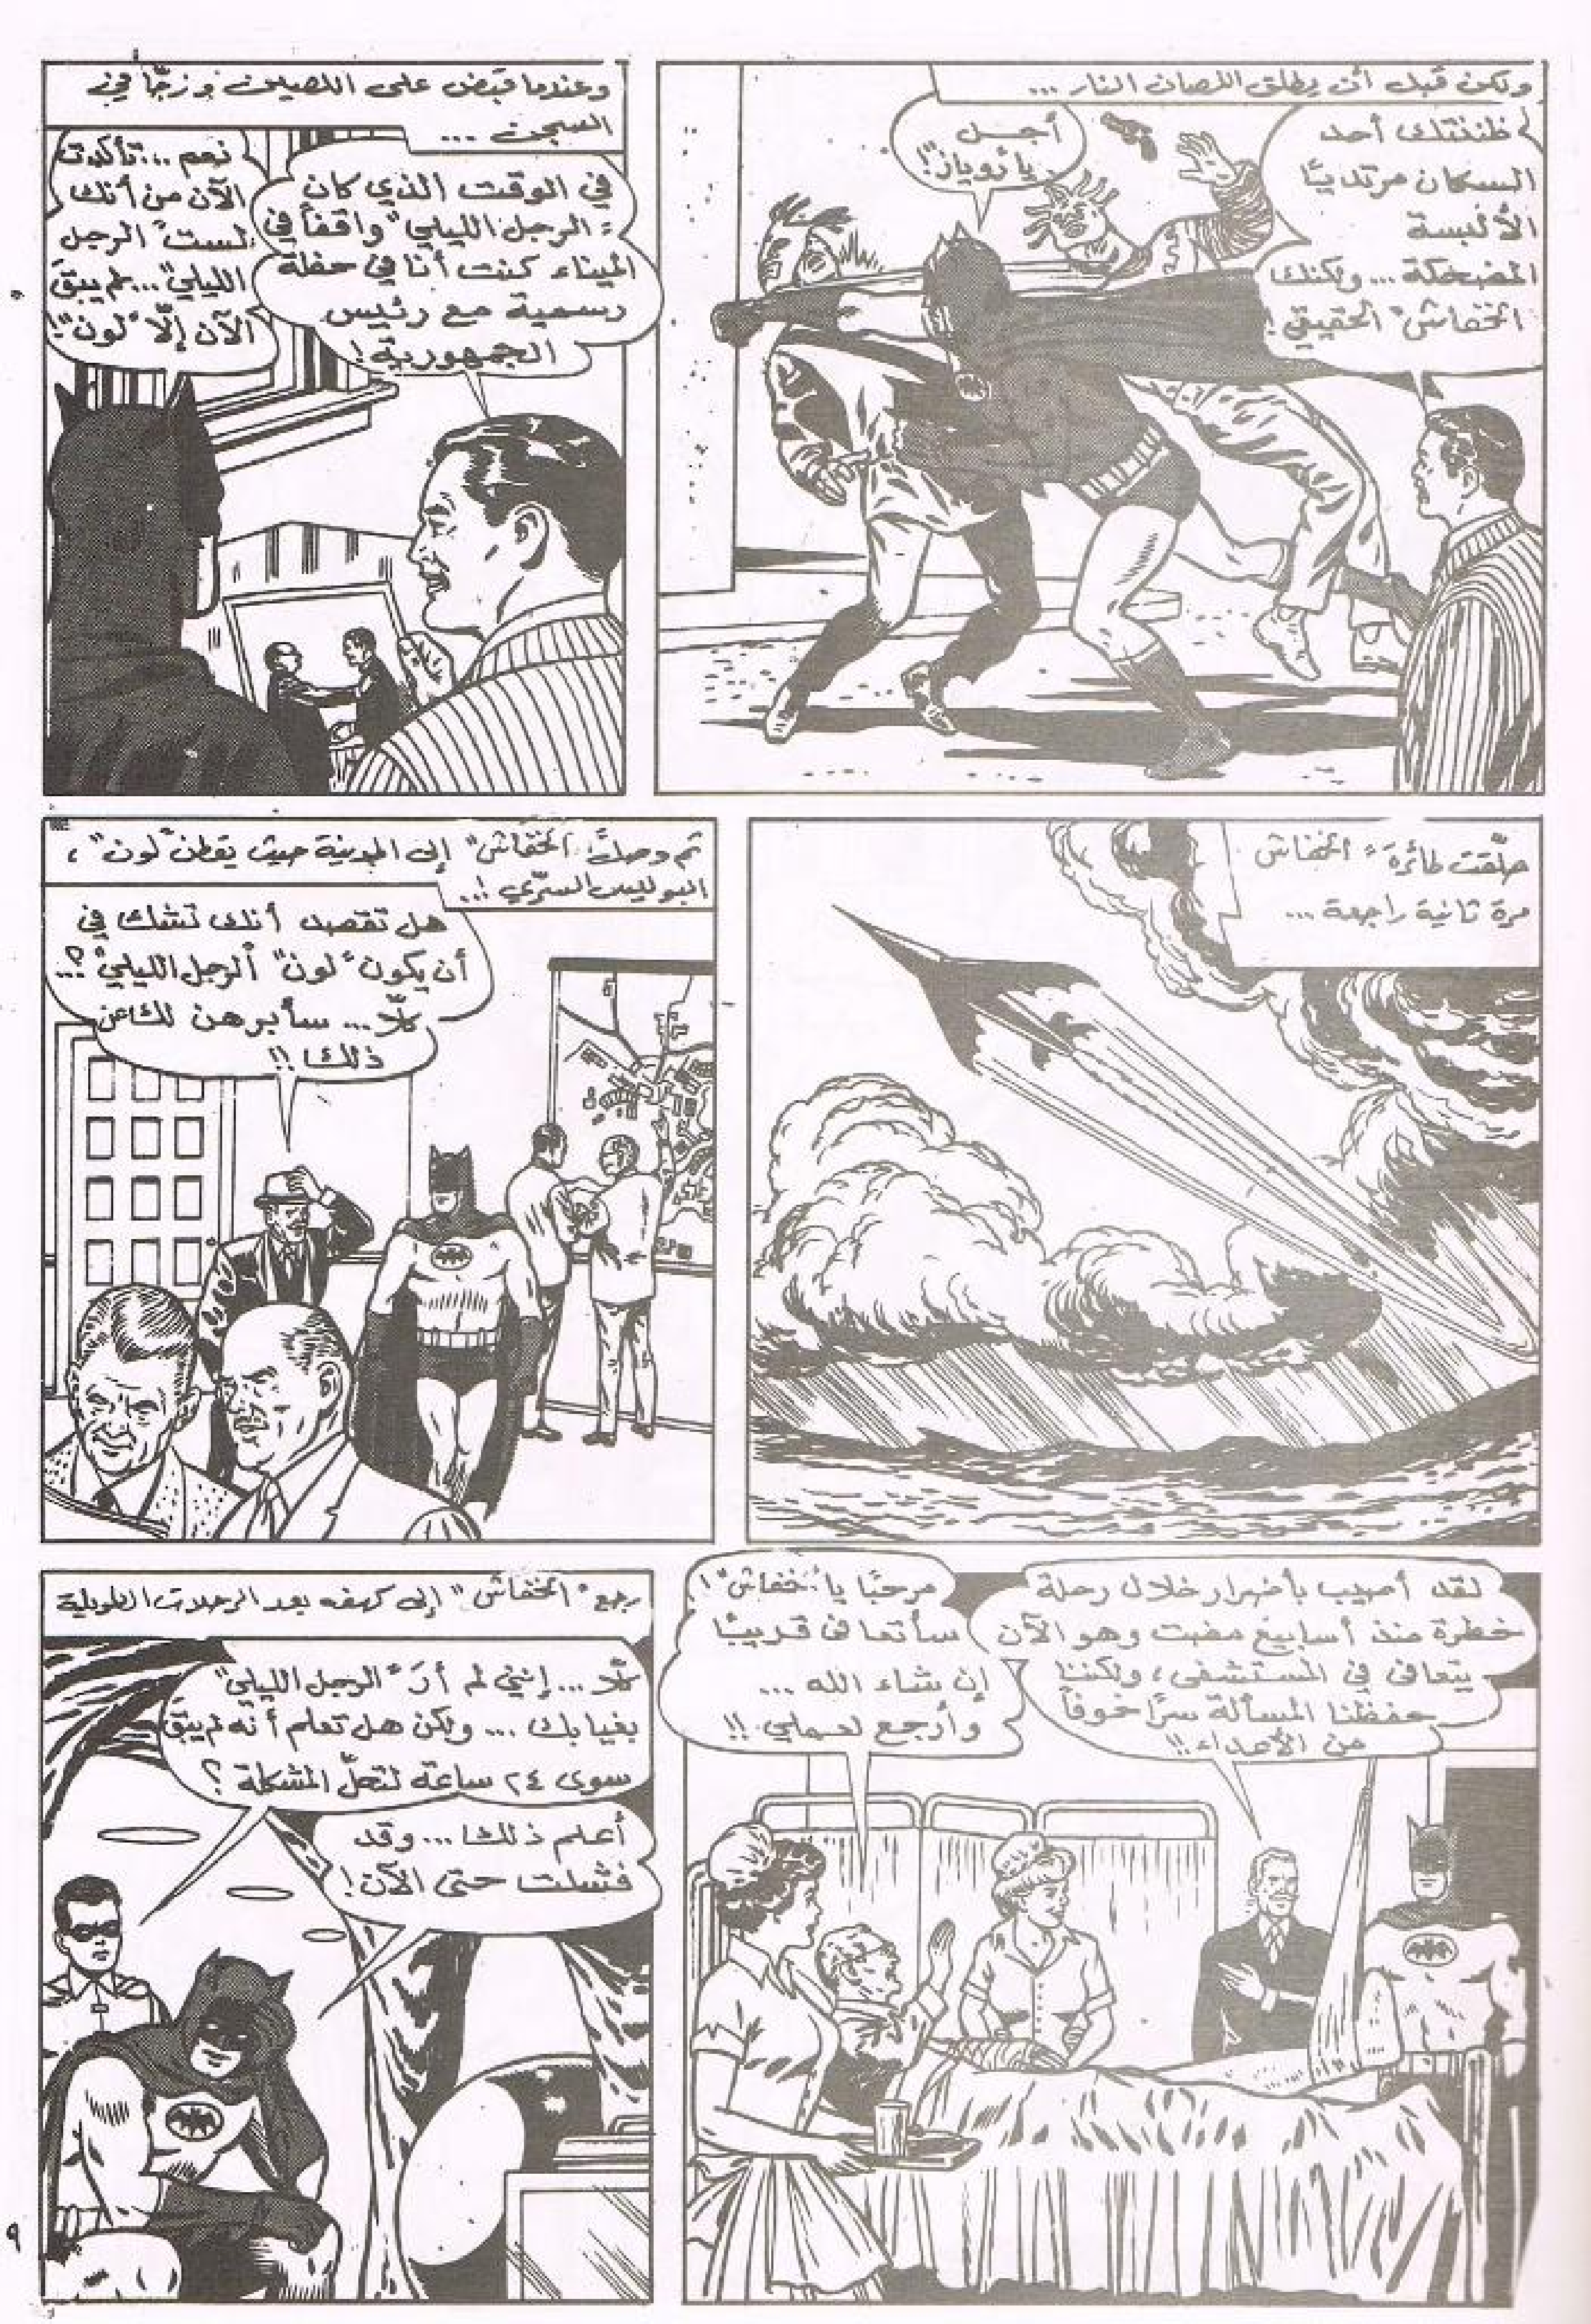 ولكن قبل أن يطلق اللصان النار ...
ظننتك أحد
السكان مرتديًا
الألبسة
المضحكة ... ولكنك
"الخفاش" الحقيقي!
أجل
يا "روياز"!
وعندما قبض على اللصين وزجّا في
السجن ...
في الوقت الذي كان
"الرجل الليلي" واقفاً في
الميناء كنت أنا في حفلة
رسمية مع رئيس
الجمهورية!
نعم ... تأكدت
الآن من أنك
لست "الرجل
الليلي" ... لم يبقَ
الآن إلّا "لون"!
حلّقت طائرة "الخفاش"
مرة ثانية راجعة ...
ثم وصل "الخفاش" إلى المدينة حيث يقطن "لون"،
البوليس السرّي !...
هل تقصد أنك تشك في
أن يكون "لون" "الرجل الليلي"؟..
كلّا ... سأبرهن لك عن
ذلك !!
لقد أصيب بأضرار خلال رحلة
خطرة منذ أسابيع مضت وهو الآن
يتعافى في المستشفى، ولكننا
حفظنا المسألة سرًا خوفاً
من الأعداء !!
مرحبًا يا "خفاش"!
سأتعافى قريبًا
إن شاء الله ...
وأرجع لعملي !!
رجع "الخفاش" إلى كهفه بعد الرحلات الطويلة
كلّا ... إنني لم أرَ "الرجل الليلي"
بغيابك ... ولكن هل تعلم أنه لم يبقَ
سوى ٢٤ ساعة لتحلّ المشكلة؟
أعلم ذلك ... وقد
فشلت حتى الآن!
٩